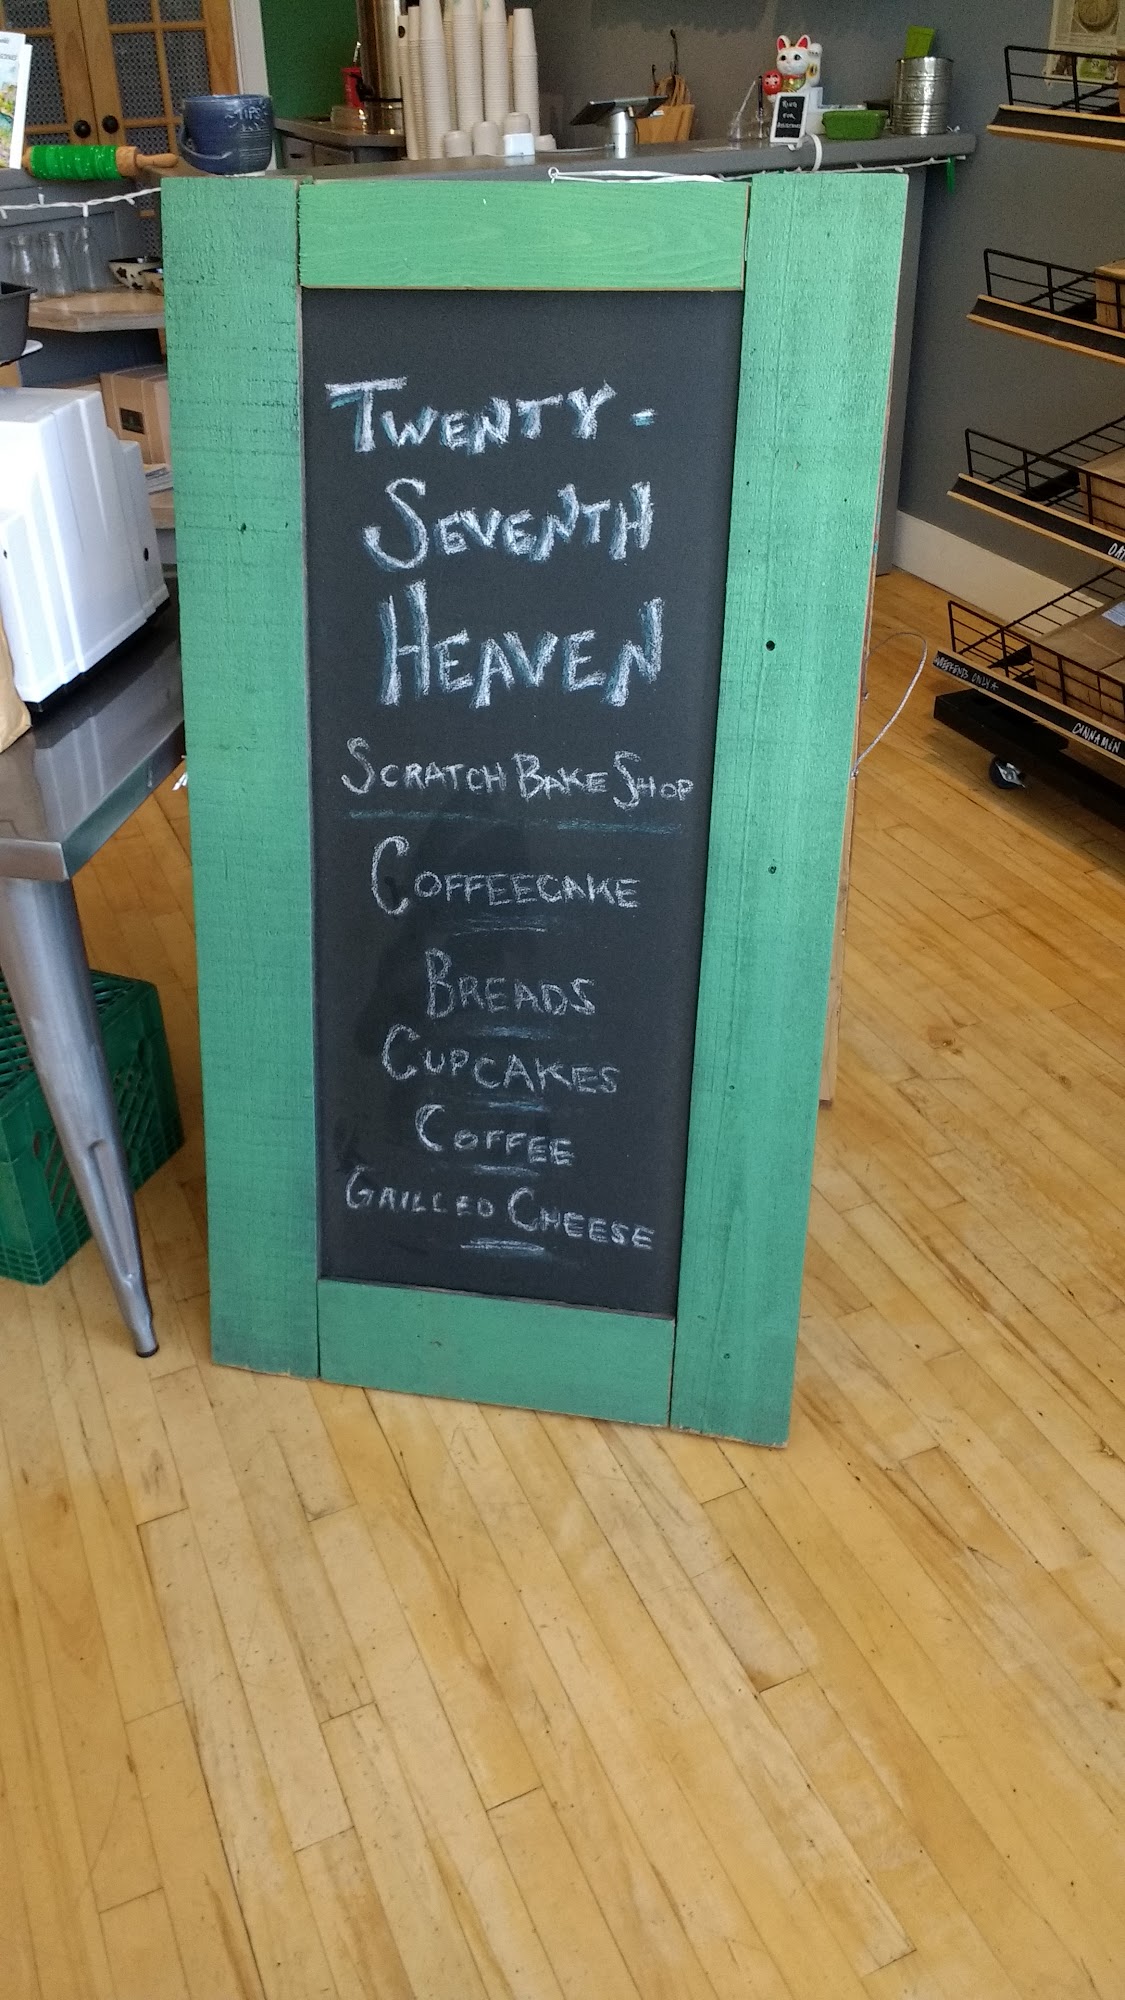 TWENTY-
SEVENTH
HEAVEN
SCRATCH BAKE SHOP
COFFEECAKE
BREADS
CUPCAKES
COFFEE
GRILLED CHEESE
RING
FOR
CINNAMON